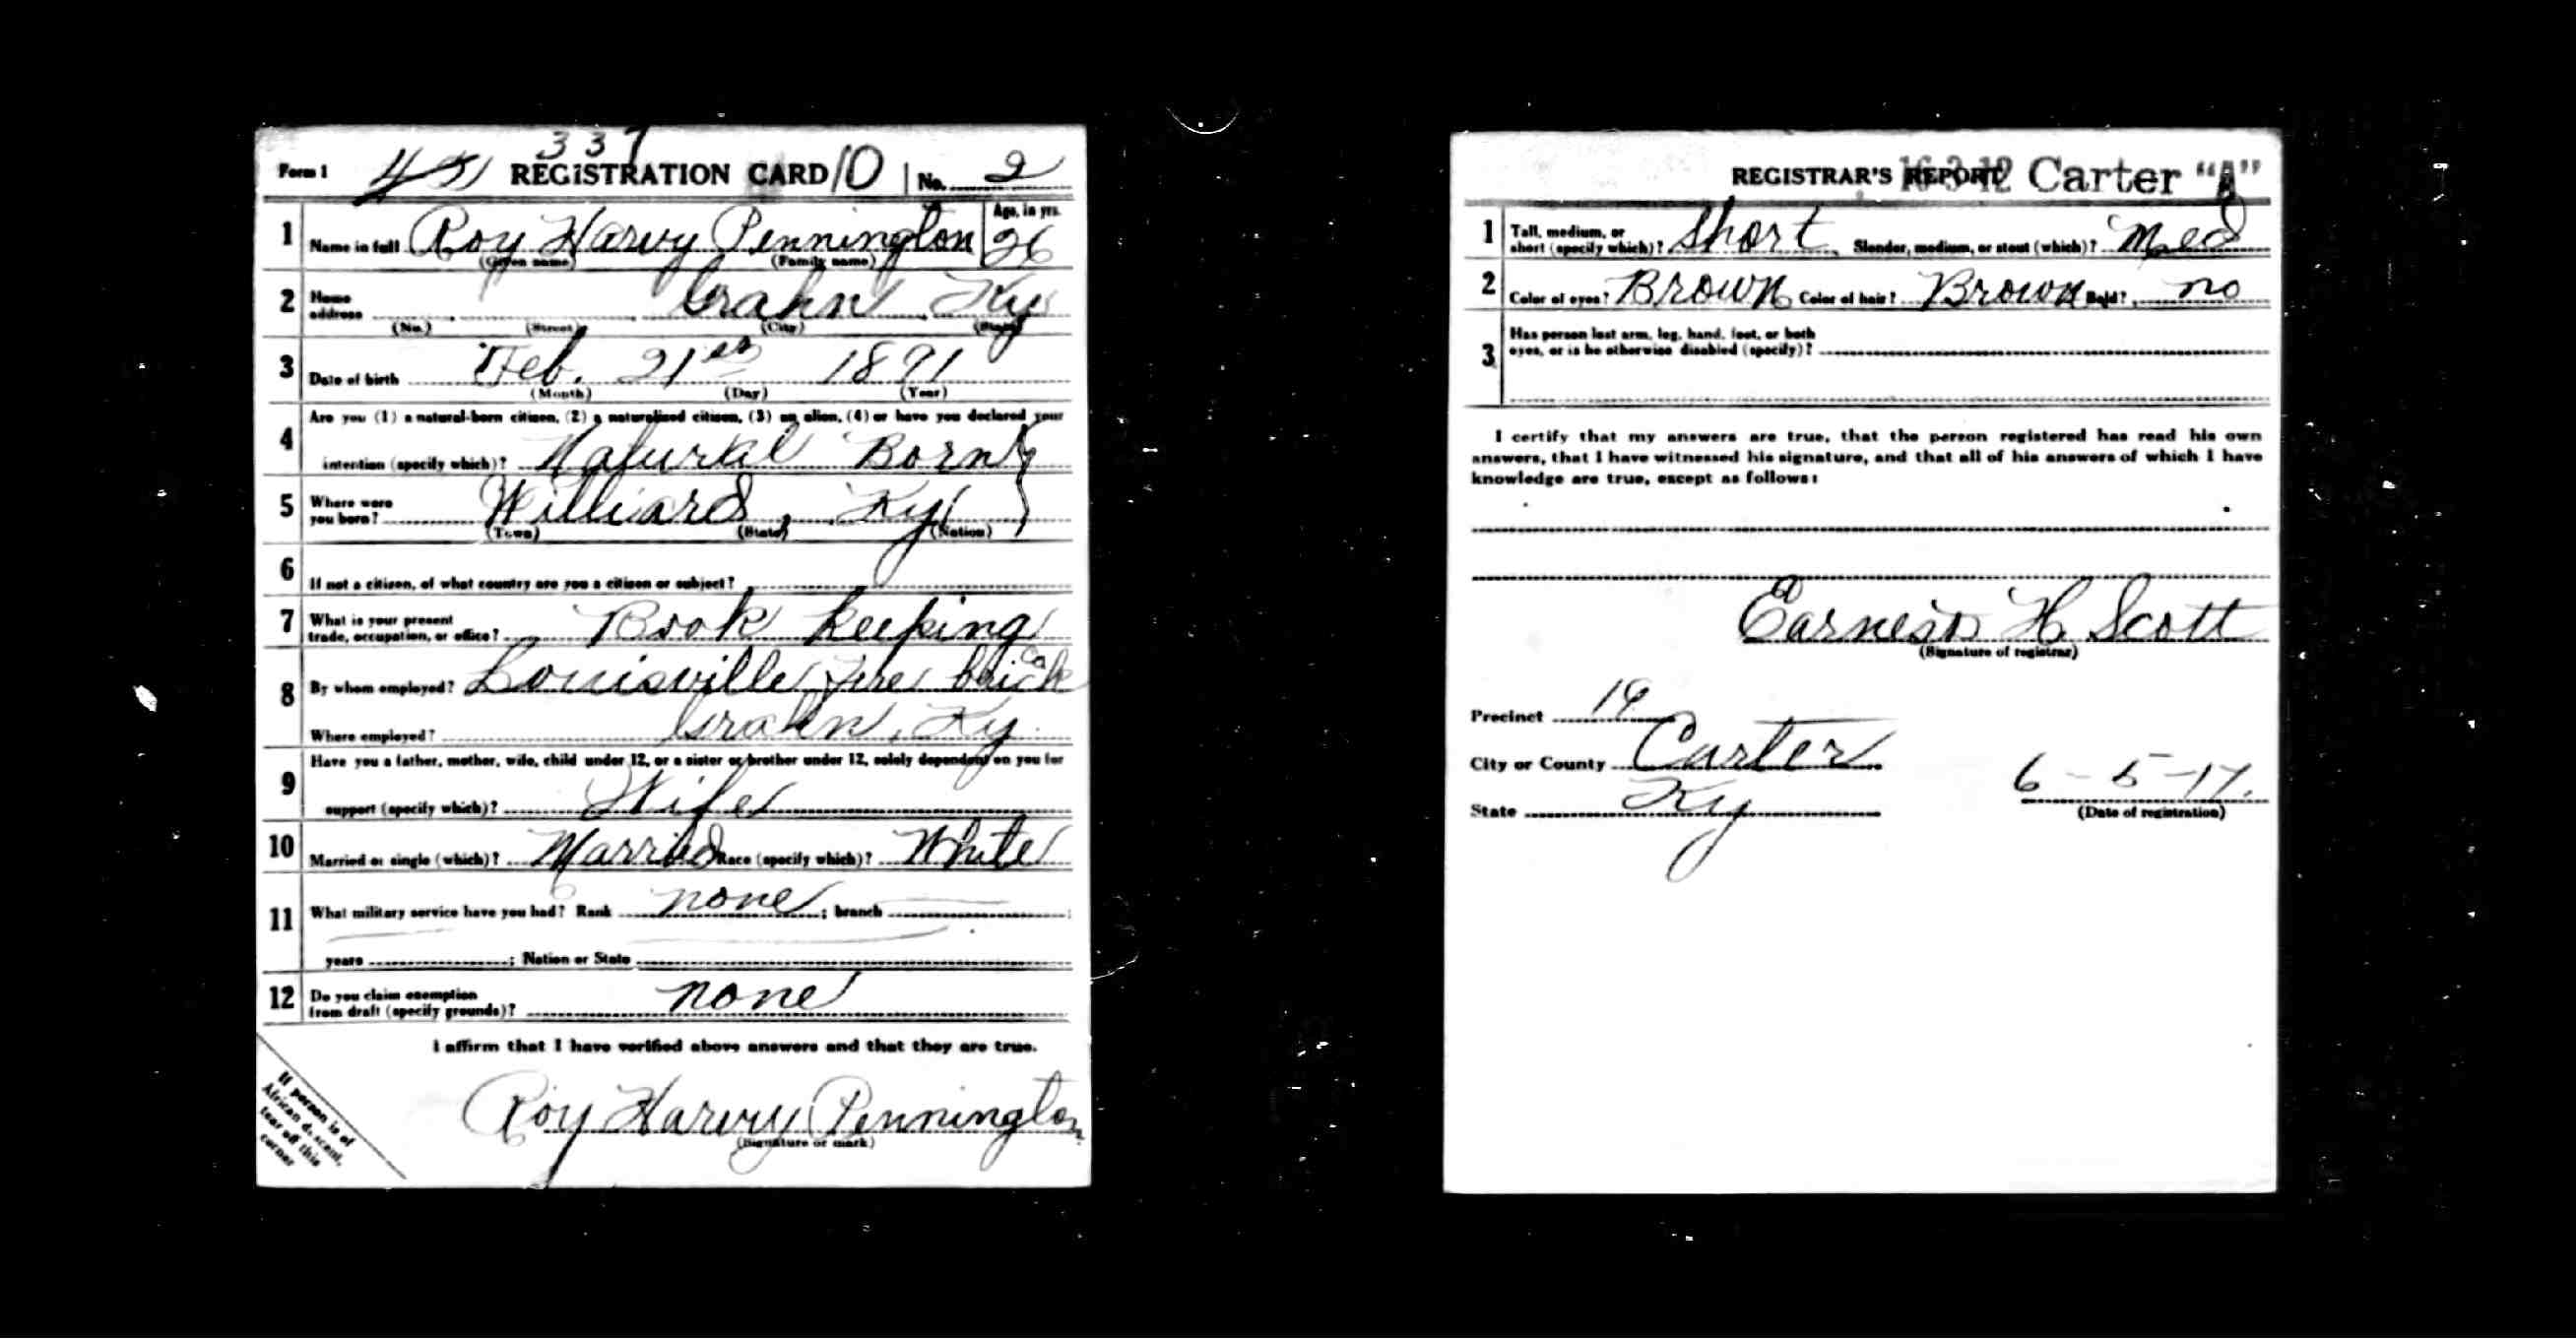 337
Form 1 451 REGISTRATION CARD 10 No. 2
1 Name in full Roy Harvy Pennington Age, in yrs. 26
(Given name) (Family name)
2 Home address Grahn Ky
(No.) (Street) (City) (State)
3 Date of birth Feb. 21st 1891
(Month) (Day) (Year)
4 Are you (1) a natural-born citizen, (2) a naturalized citizen, (3) an alien, (4) or have you declared your
intention (specify which)? Natural Born
5 Where were you born? Williard, Ky
(Town) (State) (Nation)
6 If not a citizen, of what country are you a citizen or subject?
7 What is your present trade, occupation, or office? Book Keeping
8 By whom employed? Louisville Fire brick Co
Where employed? Grahn, Ky.
9 Have you a father, mother, wife, child under 12, or a sister or brother under 12, solely dependent on you for
support (specify which)? Wife
10 Married or single (which)? Married Race (specify which)? White
11 What military service have you had? Rank none ; branch
years ; Nation or State
12 Do you claim exemption from draft (specify grounds)? none
I affirm that I have verified above answers and that they are true.
Roy Harvy Pennington
(Signature or mark)
If person is of
African descent,
tear off this
corner
REGISTRAR'S REPORT 16-3-12 Carter "A"
1 Tall, medium, or short (specify which)? Short Slender, medium, or stout (which)? Med
2 Color of eyes? Brown Color of hair? Brown Bald? no
3 Has person lost arm, leg, hand, foot, or both
eyes, or is he otherwise disabled (specify)?
I certify that my answers are true, that the person registered has read his own
answers, that I have witnessed his signature, and that all of his answers of which I have
knowledge are true, except as follows:
Earnest H. Scott
(Signature of registrar)
Precinct
City or County Carter
State Ky
6-5-17.
(Date of registration)